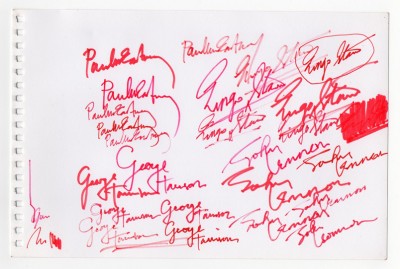 Paul McCartney
Paul McCartney
Paul McCartney
Paul McCartney
Paul McCartney
Paul McCartney
Ringo Starr
Ringo Starr
Ringo Starr
Ringo Starr
Ringo Starr
Ringo Starr
George
George Harrison
Harrison
George Harrison
George Harrison
George Harrison
George Harrison
John Lennon
John Lennon
John Lennon
John Lennon
John Lennon
John Lennon